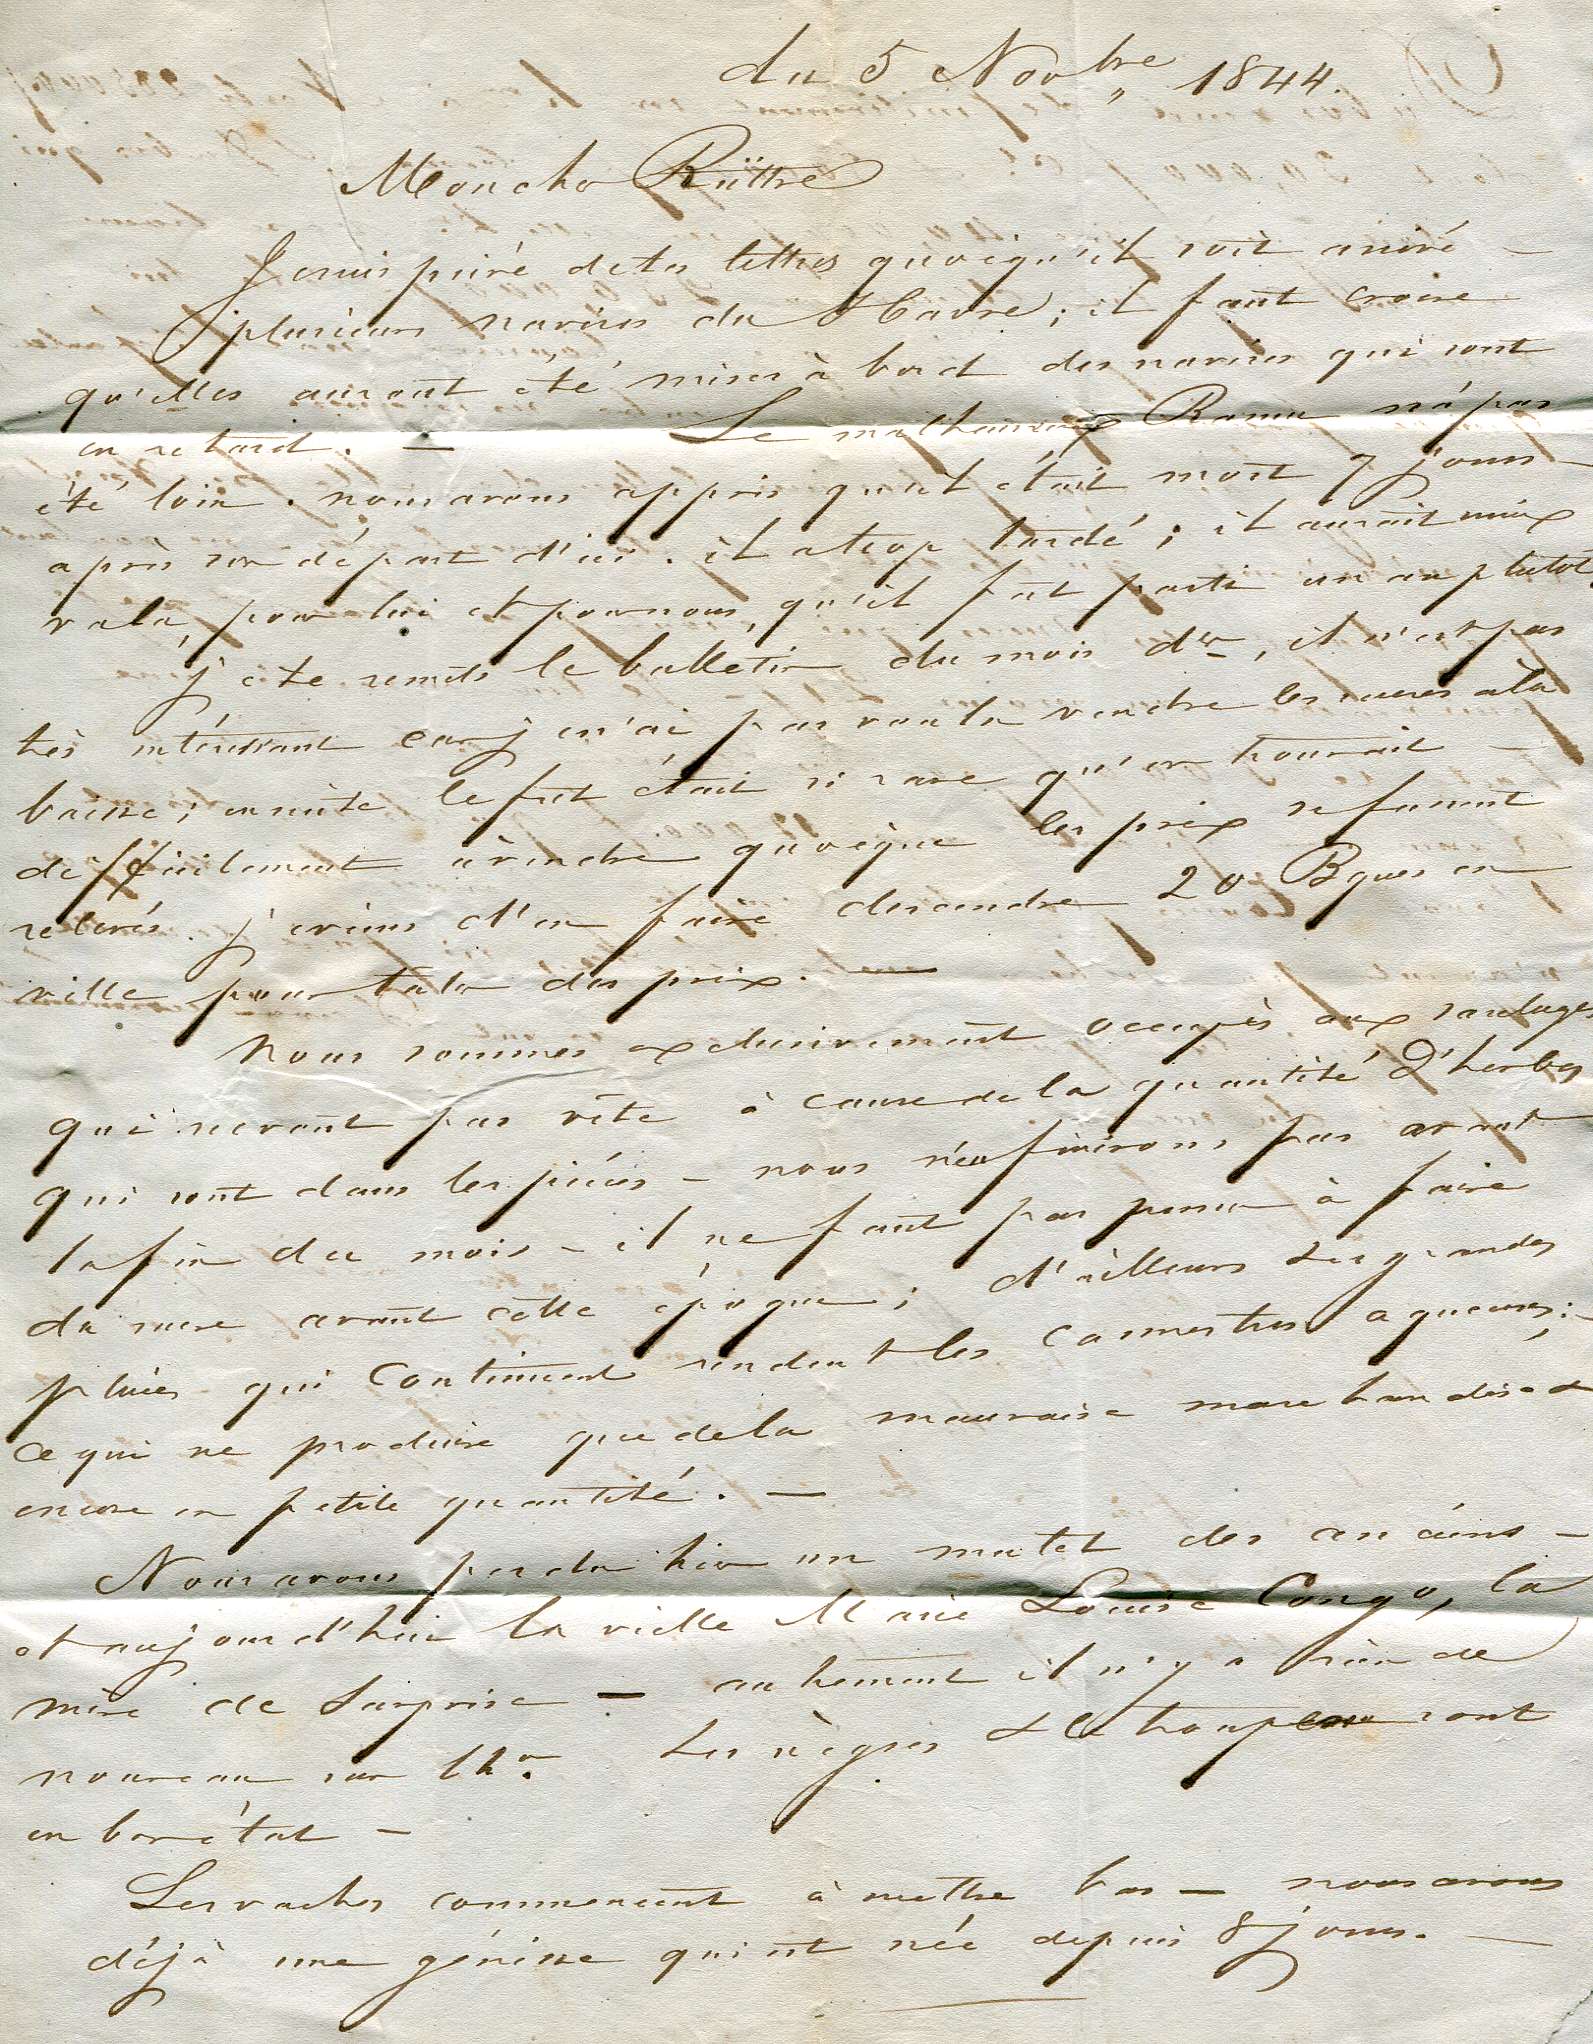 du 5 Novbre 1844.
Mon cher Rüttre
Je suis privé de tes lettres quoiqu'il soit arrivé —
plusieurs navires du Havre ; il faut croire
qu'elles auront été mises à bord des navires qui sont
en retard. — Le malheureux n'a pas
été loin. nous avons appris qu'il était mort 7 jours
après son départ d'ici. il a trop tardé ; il aurait mieux
valu, pour lui et pour nous, qu'il fut parti un an plutot.
Je te remets le bulletin du mois der, il n'est pas
très intéressant car je n'ai pas voulu vendre les sucres à la
baisse ; ensuite le fret était si rare qu'on trouvait —
difficilement à vendre quoique les prix se fussent
relevés. je viens d'en faire descendre 20 Bques en
ville pour des prix. —
Nous sommes exclusivement occupés aux sarclages
qui ne vont pas vite à cause de la quantité d'herbes
qui sont dans les pièces — nous n'en finirons pas avant
la fin du mois — il ne faut pas penser à faire
du sucre avant cette époque ; d'ailleurs les grandes
pluies qui continuent rendent les cannes très aqueuses ; —
ce qui ne produire que de la mauvaise marchandise &
encore en petite quantité. —
Nous avons perdu hier un mulet des anciens —
et aujourd'hui la vielle Marie Louise Congo, la
mère de Surprise — autrement il n'y a rien de
nouveau sur l'hon. Les nègres & le troupeau sont
en bon état —
Les vaches commencent à mettre bas — nous avons
déjà une génisse qui est née depuis 8 jours. —